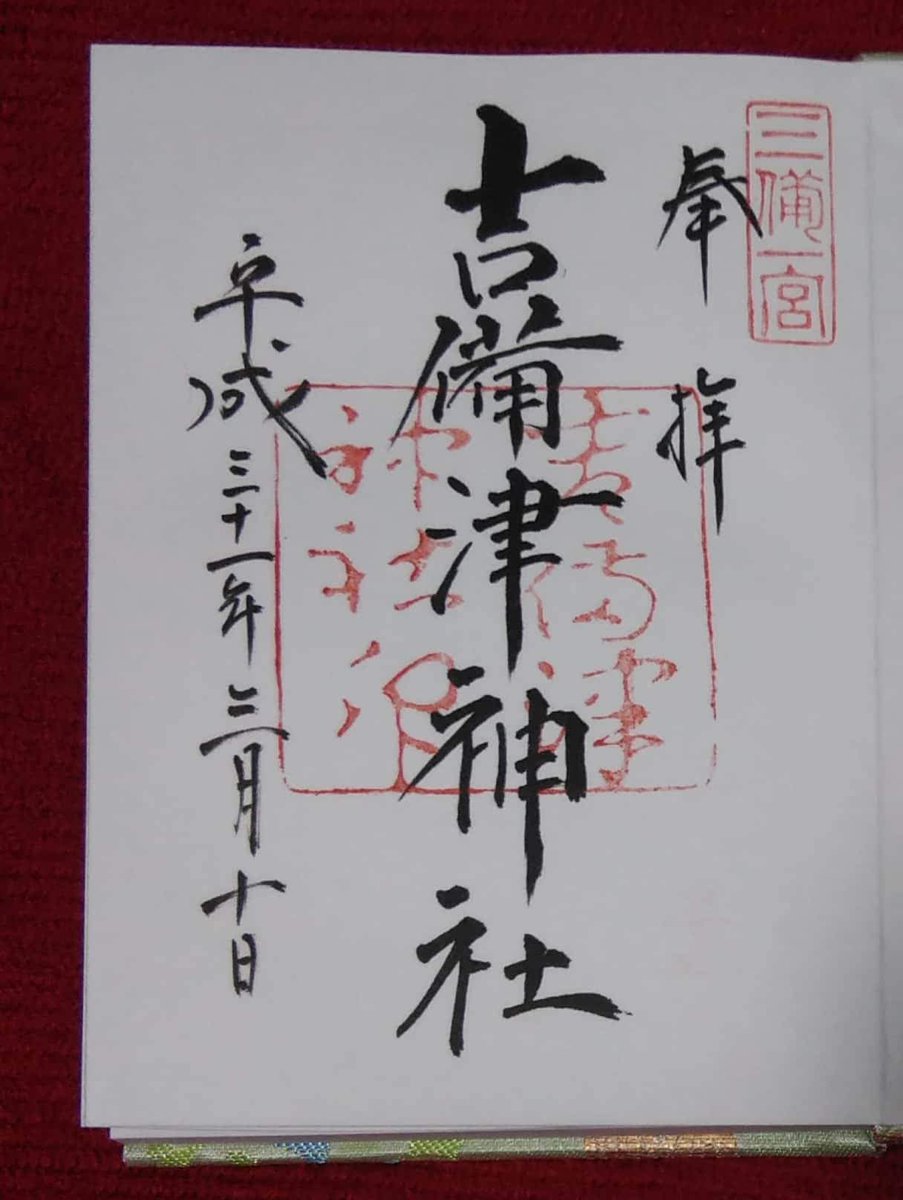 三備一宮
奉拝
吉備津神社
吉備津
神社印
平成三十一年三月十日